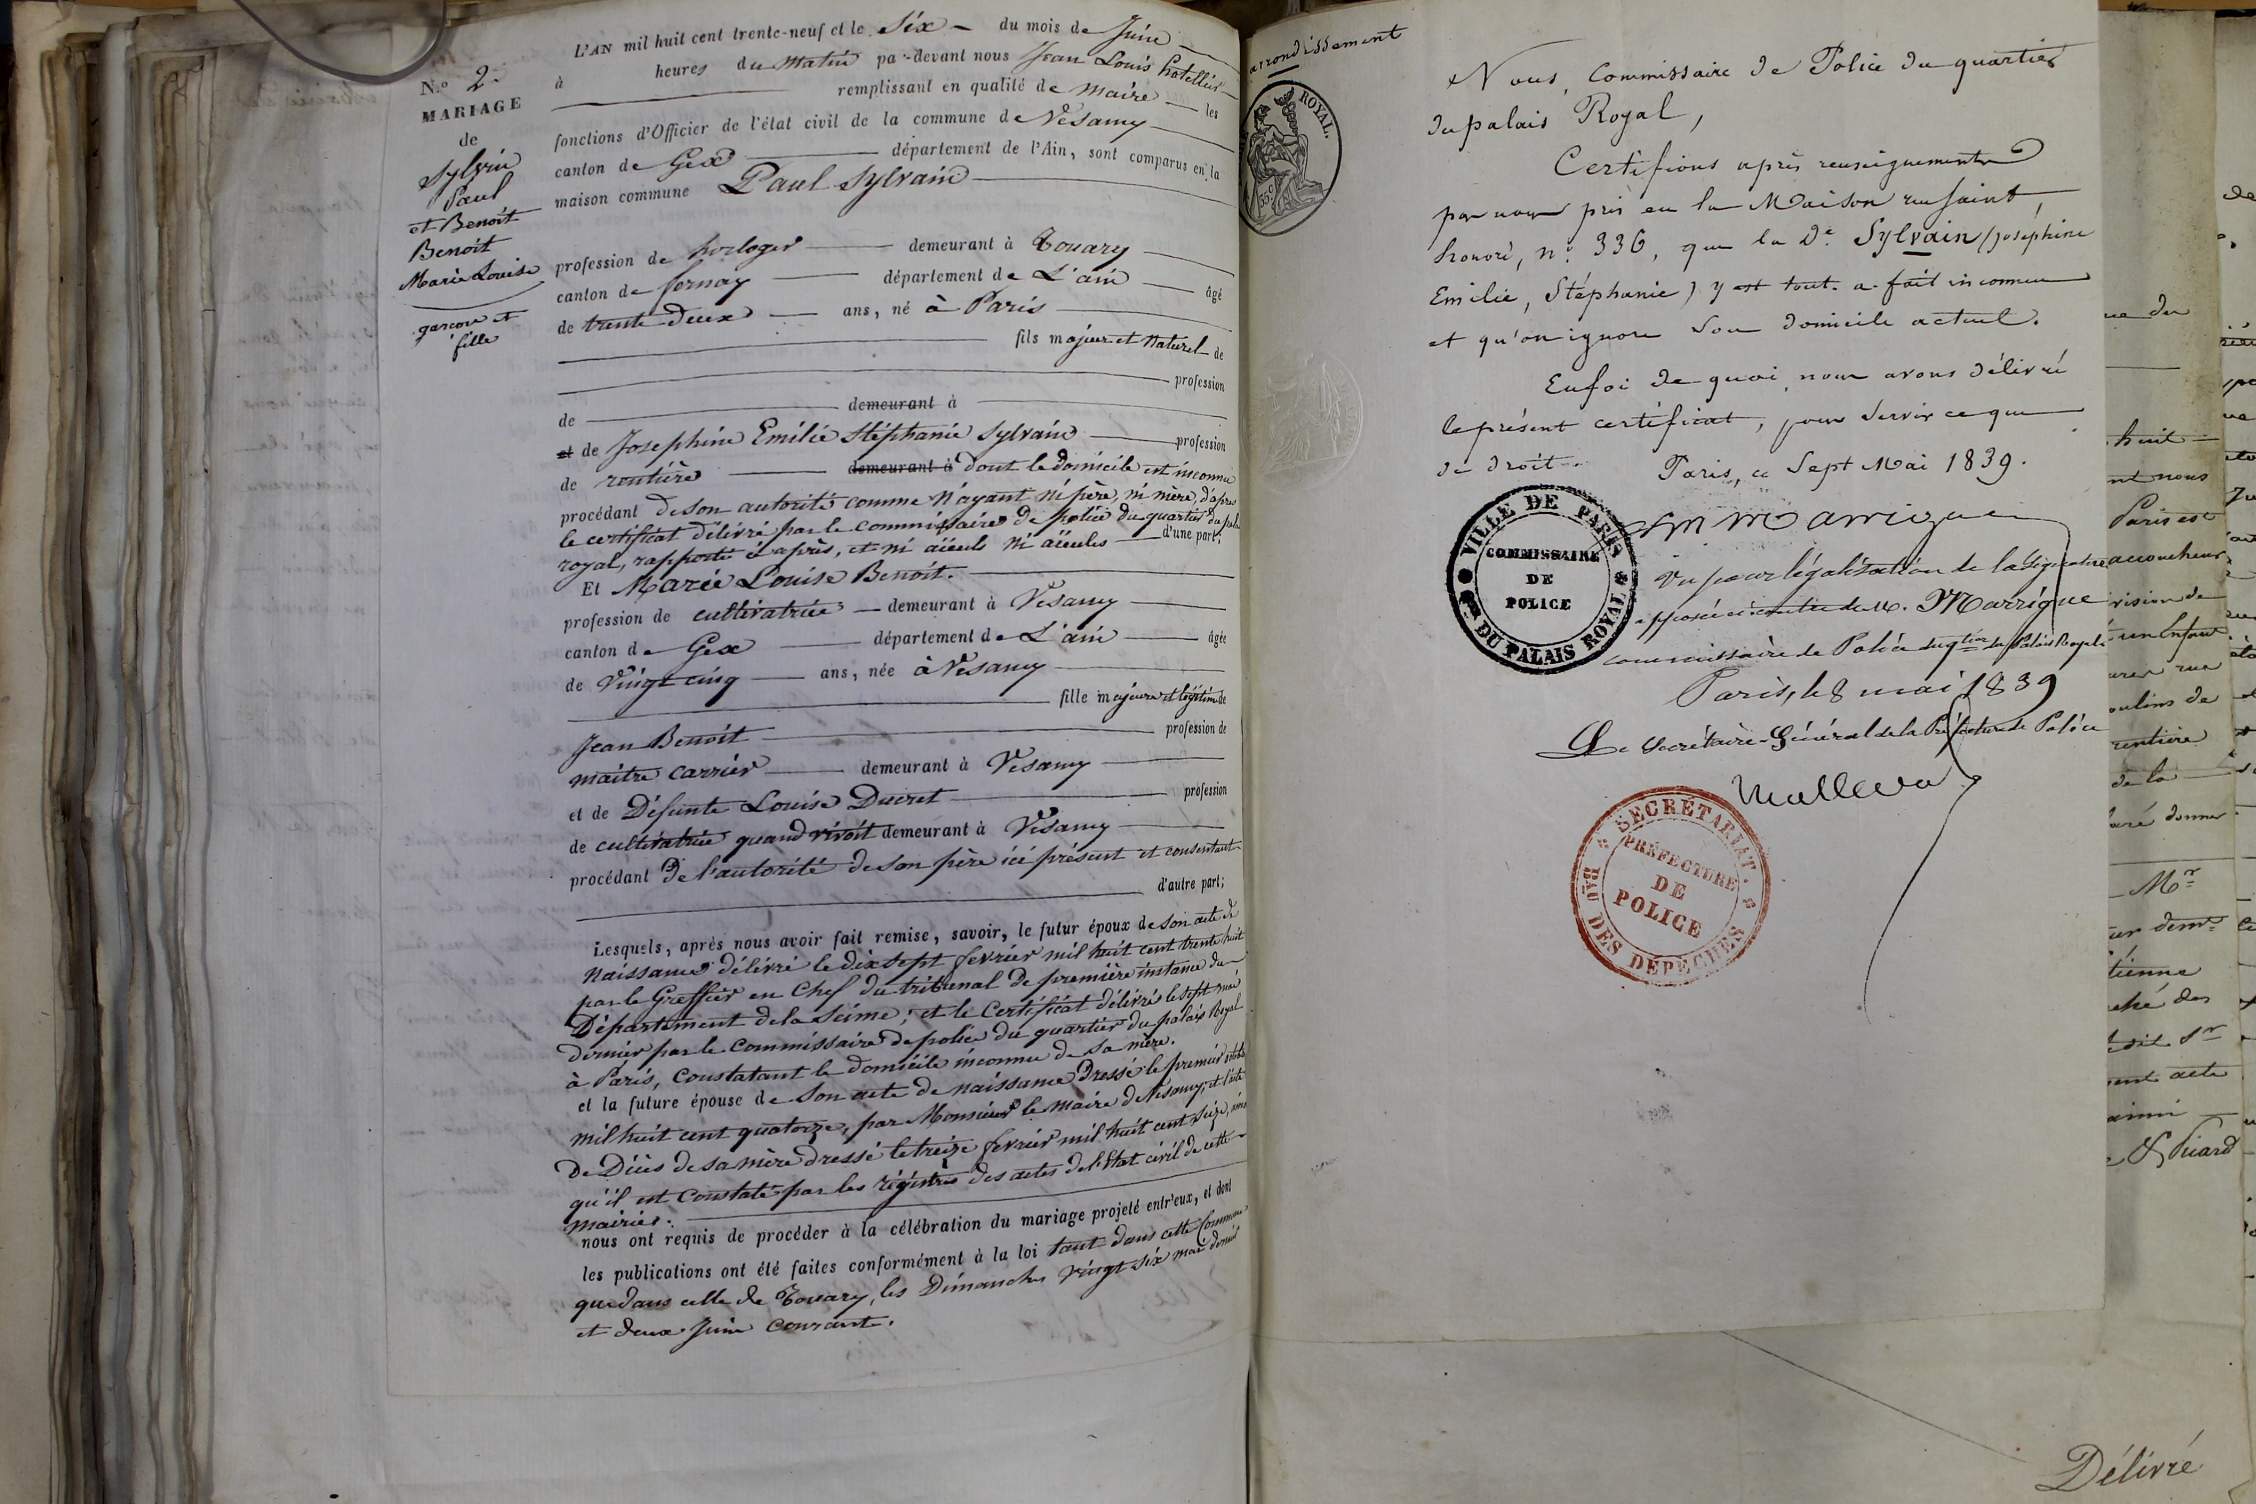 N.o 2.
MARIAGE
de
Sylvain
Paul
et Benoit
Benoit
Marie Louise
garçon et
fille
L'AN mil huit cent trente-neuf et le Six du mois de Juin
à heures du Matin par-devant nous Jean Louis hotellier
remplissant en qualité de Maire les
fonctions d'Officier de l'état civil de la commune de Vesamy
canton de Gex département de l'Ain, sont comparus en la
maison commune Paul Sylvain
profession de horloger demeurant à Touary
canton de fernay département de L'ain âgé
de trente deux ans, né à Paris
fils majeur et Naturel de
profession
de demeurant à
et de Josephine Emilie Stéphanie Sylvain profession
de rentière demeurant à dont le domicile est inconnu
procédant de son autorité comme n'ayant ni père, ni mère, d'après
le certificat délivré par le commissaire de police du quartier du palais
royal, rapporté ci après, et ni aïeuls ni aïeules d'une part;
Et Marie Louise Benoit.
profession de cultivatrice demeurant à Vesamy
canton de Gex département de L'ain âgée
de Vingt cinq ans, née à Vesamy
fille majeure et légitime de
Jean Benoit profession de
maitre carrier demeurant à Vesamy
et de Défunte Louise Ducret profession
de cultivatrice quand vivoit demeurant à Vesamy
procédant de l'autorité de son père ici présent et consentant
d'autre part;
Lesquels, après nous avoir fait remise, savoir, le futur époux de son acte de
Naissance délivré le dix sept fevrier mil huit cent trente huit
par le Greffier en Chef du tribunal de première instance du
Département de la Seine; et le Certificat délivré le sept mai
dernier par le commissaire de police du quartier du palais Royal
à Paris, constatant le domicile inconnu de sa mère.
et la future épouse de son acte de naissance Dressé le premier
mil huit cent quatorze, par Monsieur le maire de Vesamy, et l'acte
De Décès de sa mère dressé le treize fevrier mil huit cent seize, ainsi
qu'il est constaté par les régistres des actes de l'Etat civil de cette
mairie.
nous ont requis de procéder à la célébration du mariage projeté entr'eux, et dont
les publications ont été faites conformément à la loi tant dans cette Commune
que dans celle de Touary, les Dimanches vingt six mai dernier
et deux Juin courant.
arrondissement
ROYAL.
35 c
Nous, Commissaire de Police du quartier
du palais Royal,
Certifions après renseignements
par nous pris en la Maison rue Saint,
honoré, n.o 336, que la De. Sylvain (Joséphine
Emilie, Stéphanie) y est tout. a fait inconnue
et qu'on ignore son domicile actuel.
En foi de quoi, nous avons délivré
le présent certificat, pour servir ce que
de droit. Paris, ce Sept Mai 1839.
VILLE DE PARIS
COMMISSAIRE
DE
POLICE
DU PALAIS ROYAL
Vu pour légalisation de la signature
apposée ci contre de M. Marrigue
commissaire de Police du qtier du Palais Royal.
Paris, le 8 mai 1839
Le Secrétaire-Général de la Préfecture de Police
SECRÉTARIAT.
PRÉFECTURE
DE
POLICE
BAU DES DÉPÊCHES
ue du
huit
nt nous
Paris est
accoucheur
vision de
un Enfant
rue
oulins de
rentière
de la
laré donner
Mr
tienne
ché des
ledit Sr
ent acte
ainsi
Picard
Délivré